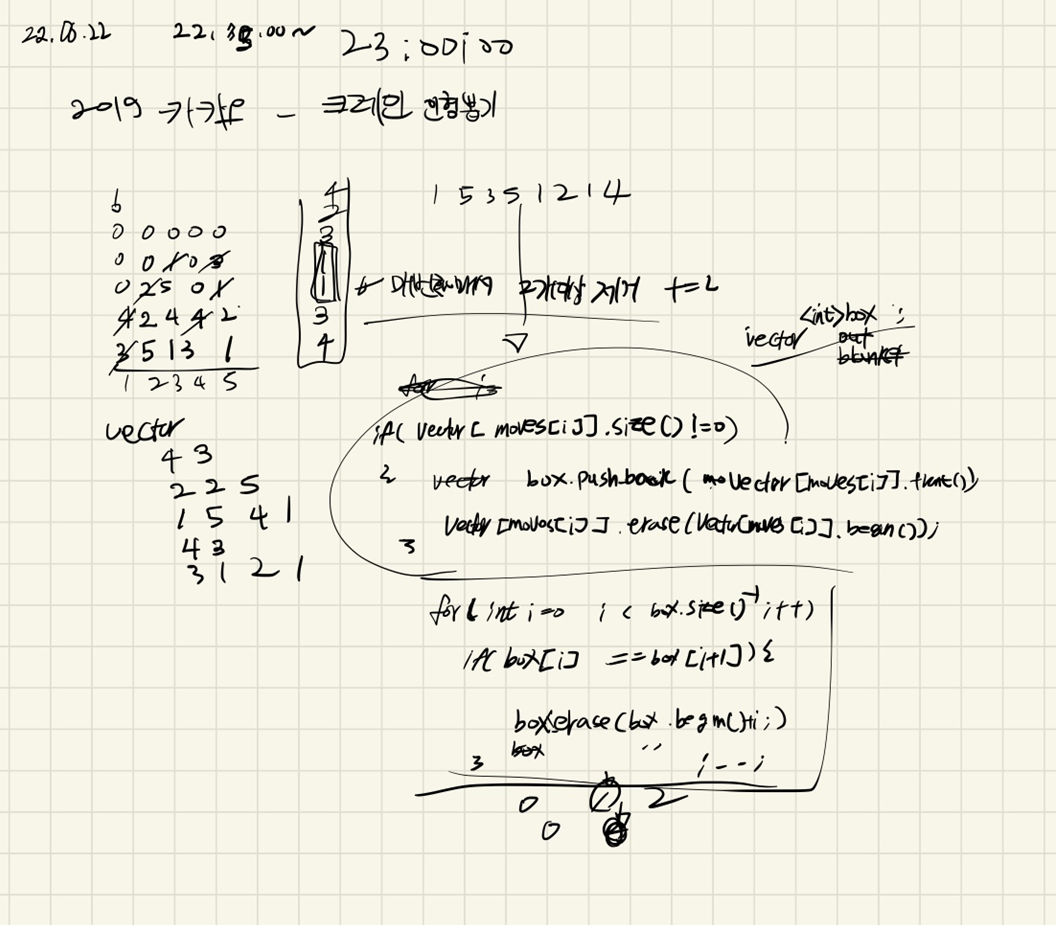 22.08.22 22.35.00~ 23:00:00
2019 카카오 - 크레인 인형뽑기
1 5 3 5 1 2 1 4
0 0 0 0 0
0 0 1 0 3
0 2 5 0 1
4 2 4 4 2
3 5 1 3 1
1 2 3 4 5
4
2
3
1
1
3
4
2개이상 제거 += 2
vector <int>box ;
out
blanket
for i=
vector
4 3
2 2 5
1 5 4 1
4 3
3 1 2 1
if( vector[ moves[i]].size() !=0)
{ vector box.push_back( mo vector[moves[i]].front())
vector[moves[i]].erase(vector[moves[i]].begin());
}
for( int i=0 i < box.size()-1 ; i++)
if( box[i] ==box[i+1]){
box.erase(box.begin()+i;)
box ''
} i--;
0 1 2
0